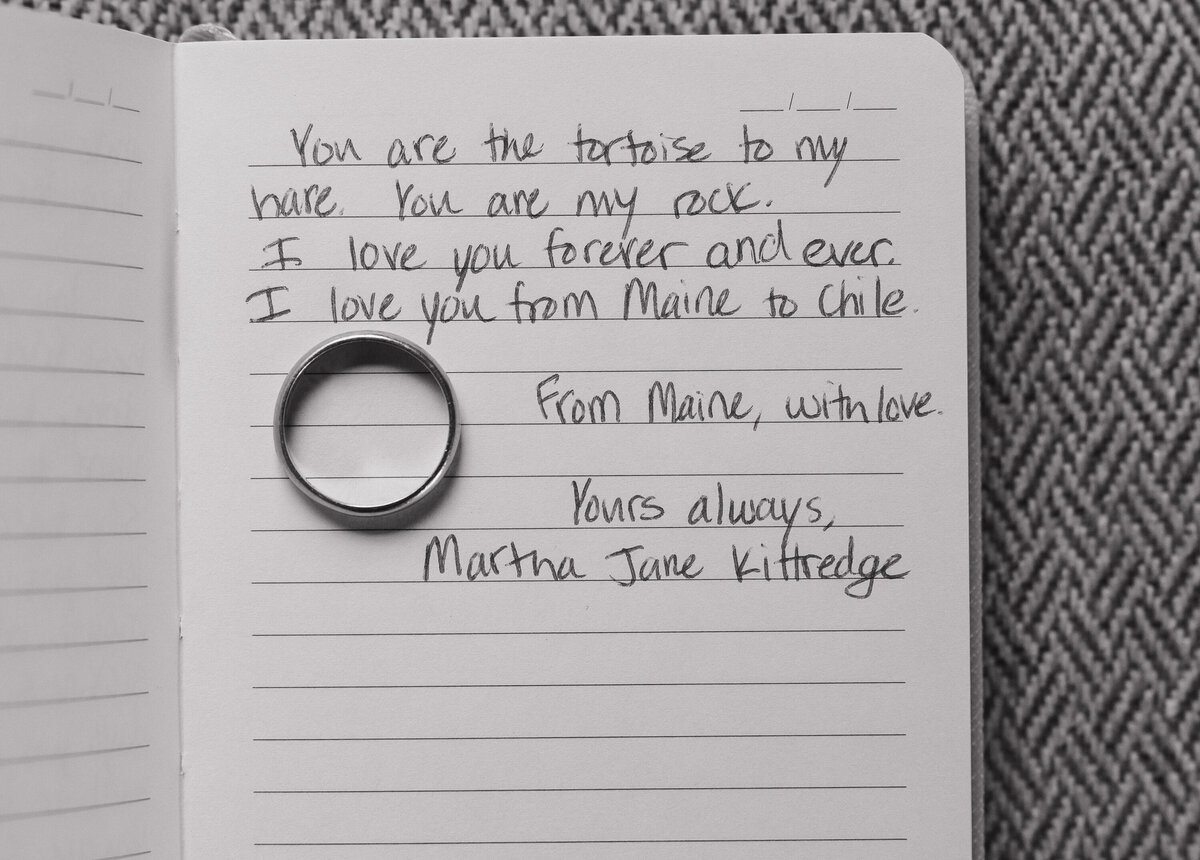 You are the tortoise to my
hare. You are my rock.
I love you forever and ever.
I love you from Maine to Chile.
From Maine, with love.
Yours always,
Martha Jane Kittredge